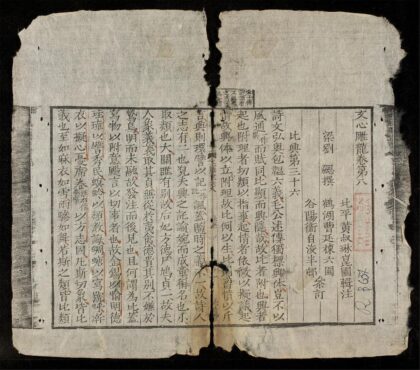 文心雕龍卷第八
梁劉勰撰
北平黃叔琳崑圃輯注
鶴湖曹廷棟六圃
參訂
比興第三十六
詩文弘奧包韞六義毛公述傳獨標興體豈不以
風通而賦同比顯而興隱哉故比者附也興者
起也附理者切類以指事起情者依微以擬議起
情故興體以立附理故比例以生比則
則環譬以記諷蓋隨時之義不一故詩人
之志有二也觀夫興之託諭婉而成章稱名也小
取類也大關雎有別故后妃方德尸鳩貞一故夫
人象義義取其貞無從於夷禽德貴其別不嫌於
鷙鳥明而未融故發注而後見也且何謂為比蓋
寫物以附意颺言以切事者也故金錫以喻明德
珪璋以譬秀民螟蛉以類教誨蜩螗以寫號呼澣
衣以擬心憂卷席以方志固凡斯切象皆比
義也至如麻衣如雪兩驂如舞若斯之類皆比類